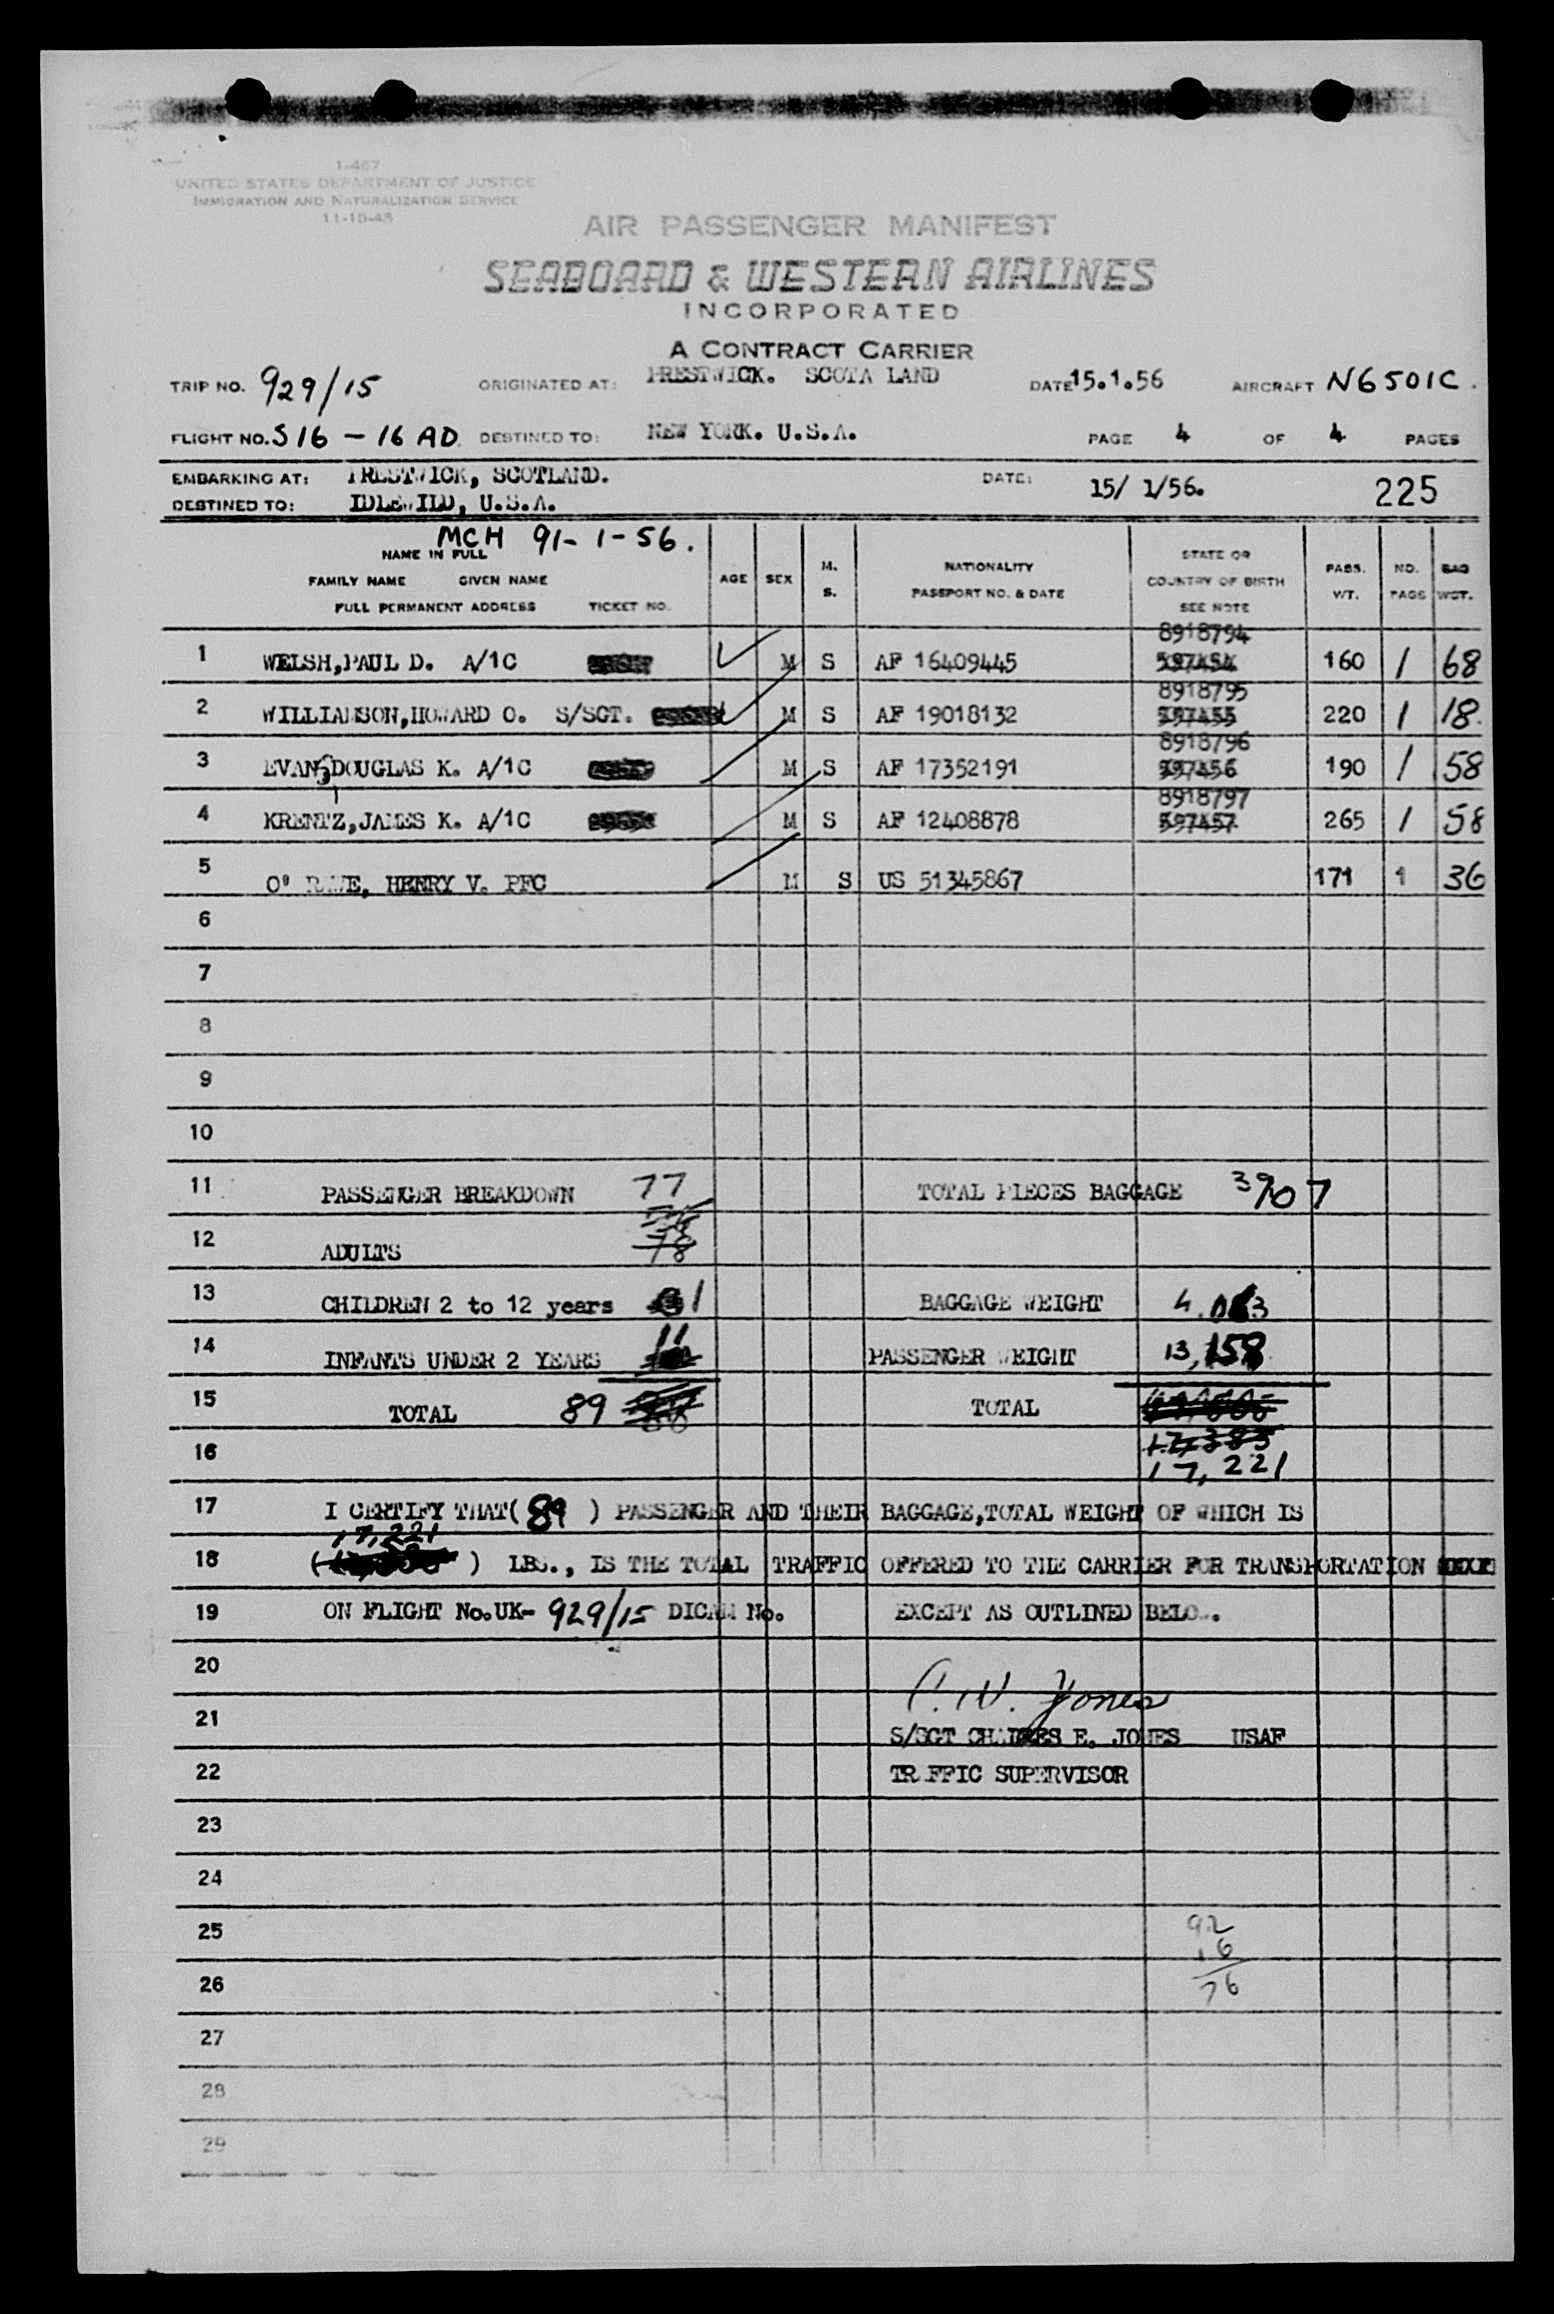 1-467
UNITED STATES DEPARTMENT OF JUSTICE
IMMIGRATION AND NATURALIZATION SERVICE
11-15-45
AIR PASSENGER MANIFEST
SEABOARD & WESTERN AIRLINES
INCORPORATED
A CONTRACT CARRIER
TRIP NO. 929/15 ORIGINATED AT: PRESTWICK. SCOTA LAND DATE 15.1.56 AIRCRAFT N6501C.
FLIGHT NO. S16 - 16 AD DESTINED TO: NEW YORK. U.S.A. PAGE 4 OF 4 PAGES
EMBARKING AT: PRESTWICK, SCOTLAND. DATE: 15/ 1/56. 225
DESTINED TO: IDLEWILD, U.S.A.
MCH 91-1-56.
NAME IN FULL
FAMILY NAME GIVEN NAME
FULL PERMANENT ADDRESS TICKET NO.
AGE SEX M. S. NATIONALITY PASSPORT NO. & DATE STATE OR COUNTRY OF BIRTH SEE NOTE PASS. WT. NO. PACS BAG WGT.
8918794
1 WELSH,PAUL D. A/1C M S AF 16409445 597454 160 1 68
8918795
2 WILLIAMSON,HOWARD O. S/SGT. M S AF 19018132 597455 220 1 18.
8918796
3 EVANS,DOUGLAS K. A/1C M S AF 17352191 597456 190 1 58
8918797
4 KRENTZ,JAMES K. A/1C M S AF 12408878 597457 265 1 58
5 O' HENRY V. PFC M S US 51345867 171 1 36
6
7
8
9
10
11 PASSENGER BREAKDOWN 77 TOTAL PIECES BAGGAGE
12 ADULTS 78
13 CHILDREN 2 to 12 years 1 BAGGAGE WEIGHT
14 INFANTS UNDER 2 YEARS 11 PASSENGER WEIGHT 13,158
15 TOTAL 89 TOTAL
16 17,385
17,221
17 I CERTIFY THAT( 89 ) PASSENGER AND THEIR BAGGAGE,TOTAL WEIGHT OF WHICH IS
17,221
18 ( ) LBS., IS THE TOTAL TRAFFIC OFFERED TO THE CARRIER FOR TRANSPORTATION
19 ON FLIGHT No.UK- 929/15 DICAM No. EXCEPT AS OUTLINED BELOW.
20
21 Jones
S/SGT CHARLES E. JONES USAF
22 TRAFFIC SUPERVISOR
23
24
25 92
16
26 76
27
28
29